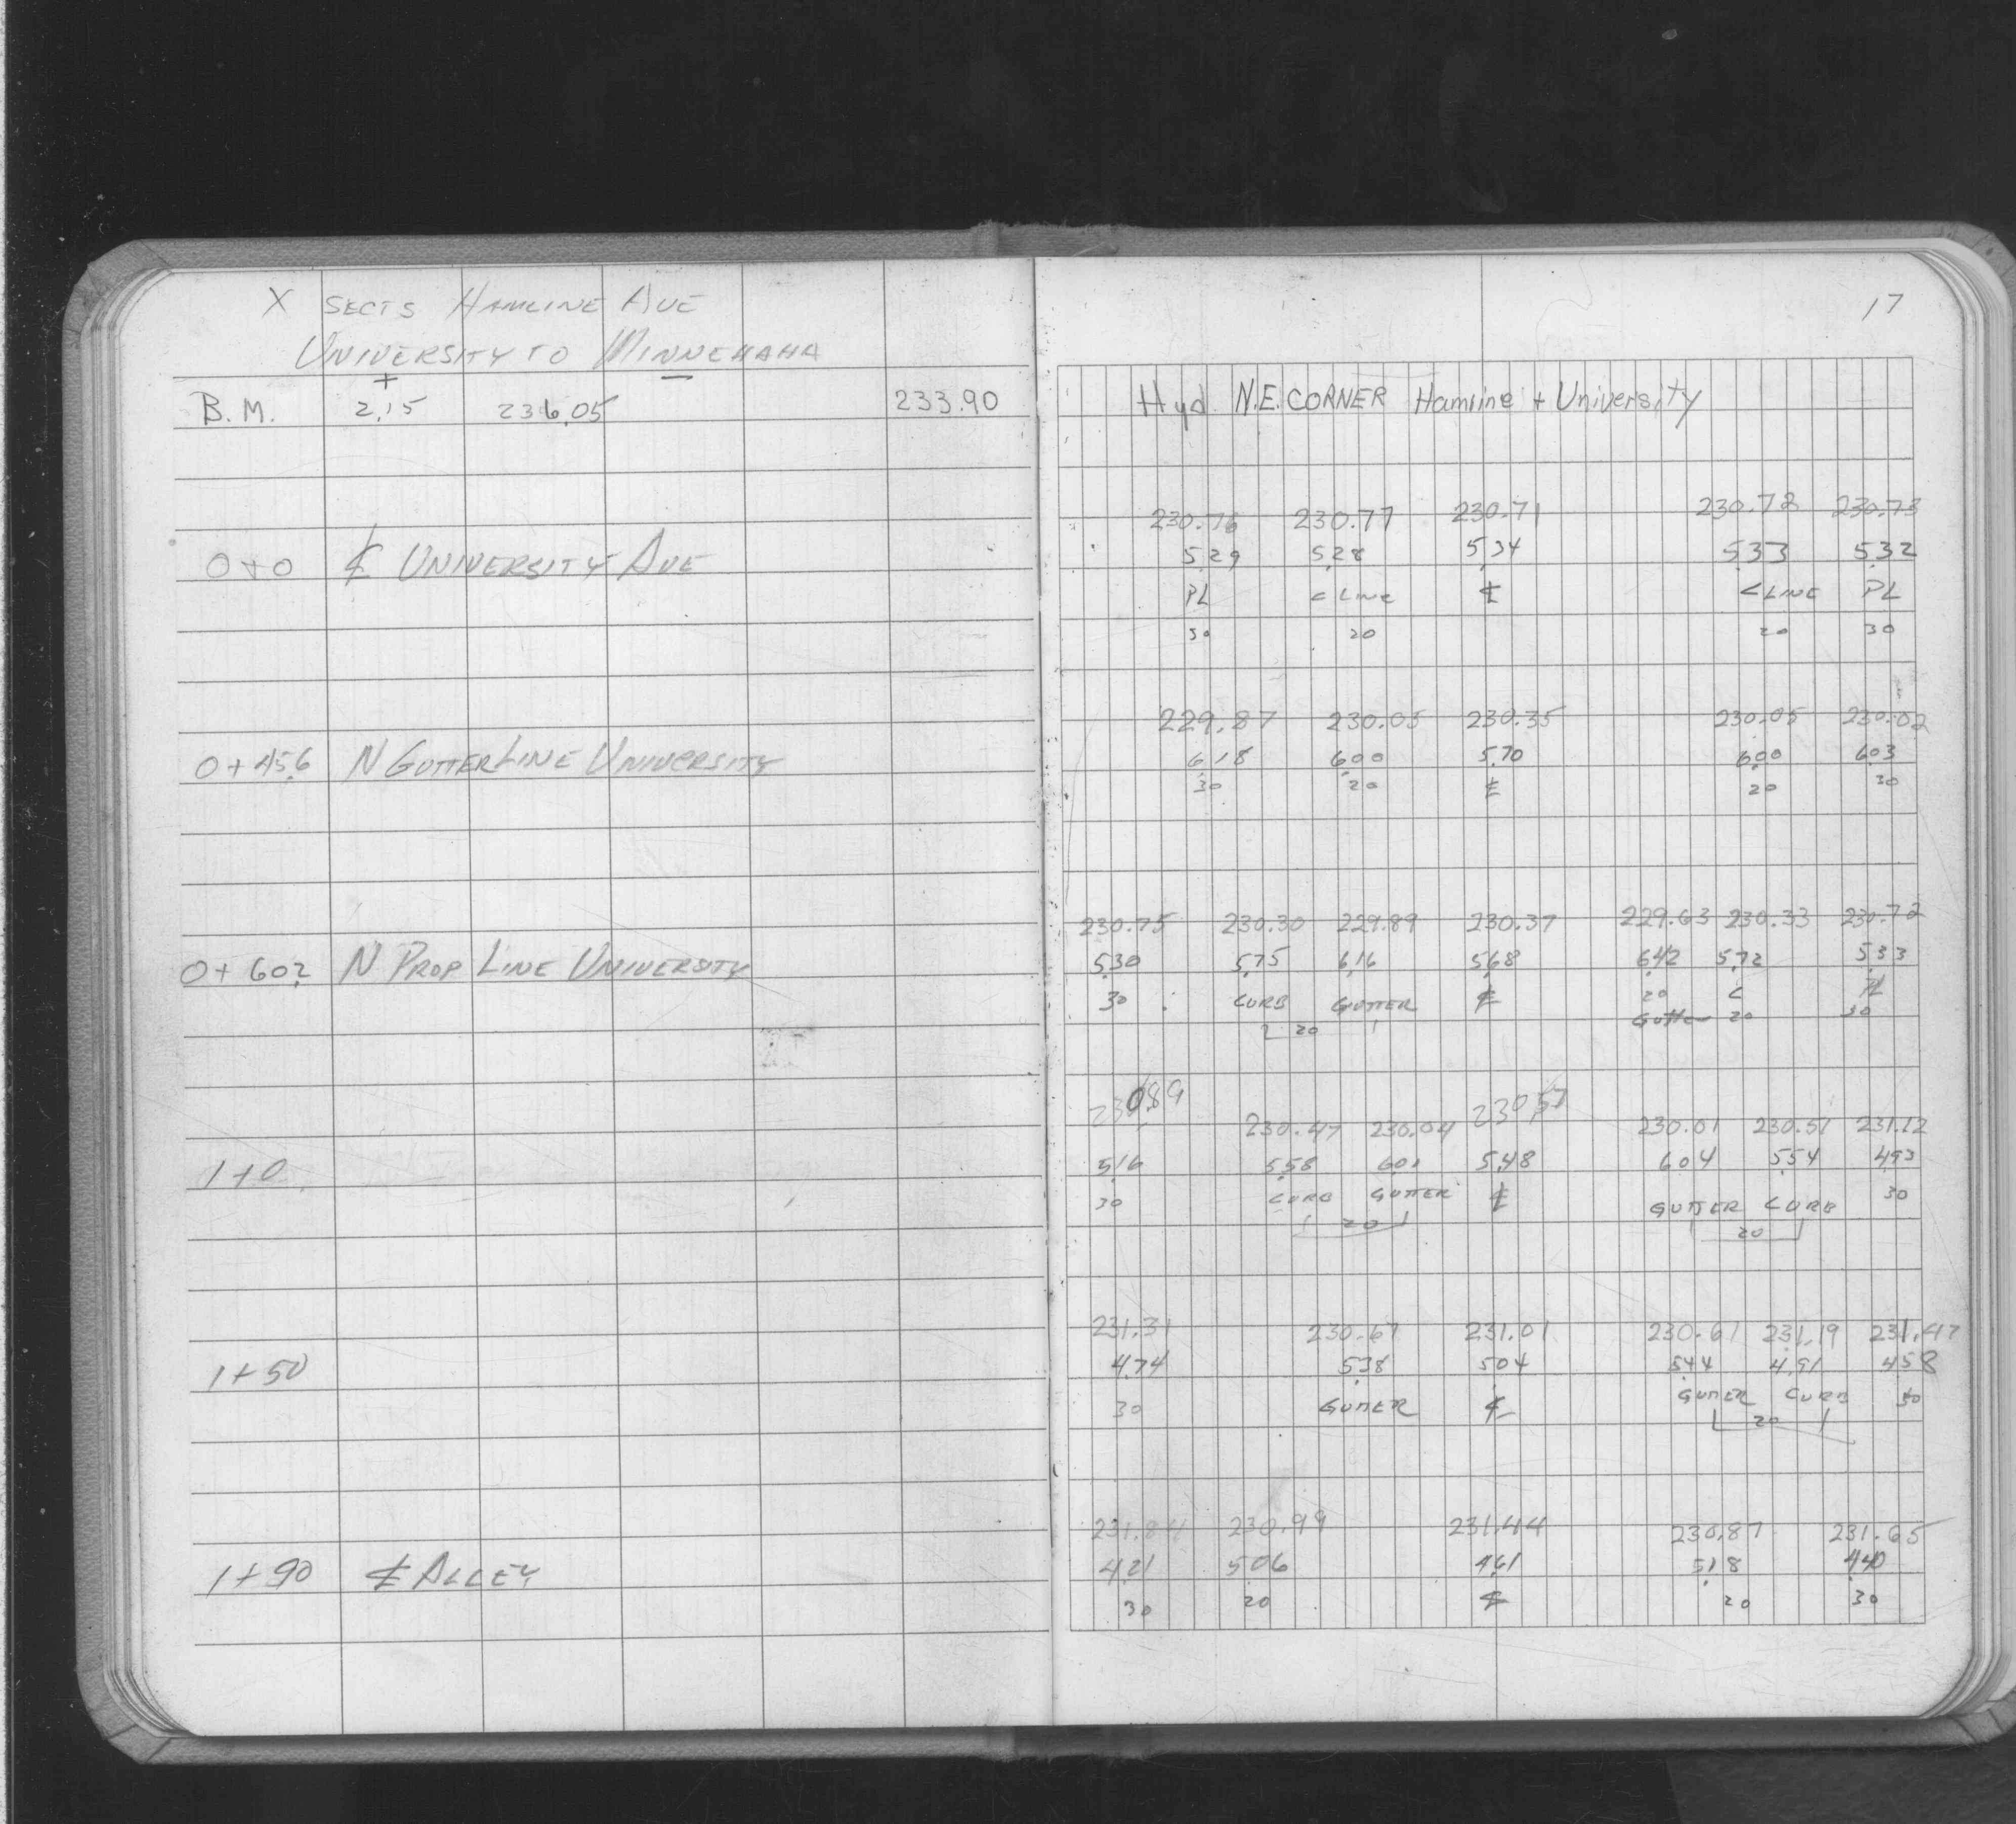 X SECTS HAMLINE AVE
UNIVERSITY TO MINNEHAHA
+ −
B.M. 2.15 236.05 233.90
0+0 ℄ UNIVERSITY AVE
0+45.6 N GUTTER LINE UNIVERSITY
0+60.2 N PROP LINE UNIVERSITY
1+0
1+50
1+90 ℄ ALLEY
17
Hyd. N.E. CORNER Hamline + University
230.76 230.77 230.71 230.72 230.73
5.29 5.28 5.34 5.33 5.32
PL C LINE ℄ C LINE PL
30 20 20 30
229.87 230.05 230.35 230.05 230.02
6.18 6.00 5.70 6.00 6.03
30 20 ℄ 20 30
230.75 230.30 229.89 230.37 229.63 230.33 230.72
5.30 5.75 6.16 5.68 6.42 5.72 5.33
30 CURB GUTTER ℄ 20 C PL
20 Gutter 20 30
230.89 230.47 230.04 230.57 230.01 230.51 231.12
5.16 5.58 6.01 5.48 6.04 5.54 4.93
30 CURB GUTTER ℄ GUTTER CURB 30
20 20
231.31 230.67 231.01 230.61 231.19 231.47
4.74 5.38 5.04 5.44 4.91 4.58
30 GUTTER ℄ GUTTER CURB 30
20
231.84 230.99 231.44 230.87 231.65
4.21 5.06 4.61 5.18 4.40
30 20 ℄ 20 30